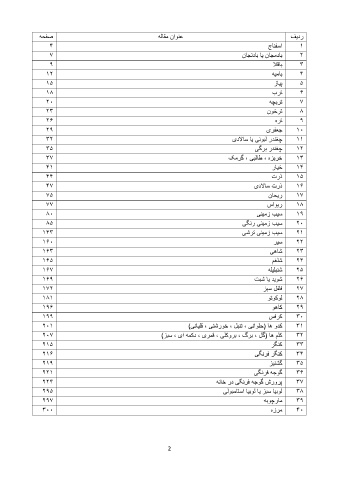 ردیف عنوان مقاله صفحه
۱ اسفناج ۳
۲ بادمجان یا بادنجان ۷
۳ باقلا ۹
۴ بامیه ۱۲
۵ پیاز ۱۵
۶ ترب ۱۸
۷ تربچه ۲۰
۸ ترخون ۲۳
۹ تره ۲۶
۱۰ جعفری ۲۹
۱۱ چغندر لبوئی یا سالادی ۳۲
۱۲ چغندر برگی ۳۵
۱۳ خربزه ، طالبی ، گرمک ۳۷
۱۴ خیار ۴۱
۱۵ ذرت ۴۴
۱۶ ذرت سالادی ۴۷
۱۷ ریحان ۷۵
۱۸ ریواس ۷۷
۱۹ سیب زمینی ۸۰
۲۰ سیب زمینی رنگی ۸۵
۲۱ سیب زمینی ترشی ۱۴۳
۲۲ سیر ۱۶۰
۲۳ شاهی ۱۶۳
۲۴ شلغم ۱۶۵
۲۵ شنبلیله ۱۶۷
۲۶ شوید یا شبت ۱۶۹
۲۷ فلفل سبز ۱۷۲
۲۸ لوکوتو ۱۸۱
۲۹ کاهو ۱۹۴
۳۰ کرفس ۱۹۹
۳۱ کدو ها (حلوائی ، تنبل ، خورشتی ، قلیانی) ۲۰۱
۳۲ کلم ها (گل ، برگ ، بروکلی ، قمری ، دکمه ای ، سبز) ۲۰۷
۳۳ کنگر ۲۱۵
۳۴ کنگر فرنگی ۲۱۶
۳۵ گشنیز ۲۱۹
۳۶ گوجه فرنگی ۲۲۱
۳۷ پرورش گوجه فرنگی در خانه ۲۲۳
۳۸ لوبیا سبز یا لوبیا استامبولی ۲۹۵
۳۹ مارچوبه ۲۹۷
۴۰ مرزه ۳۰۰
2